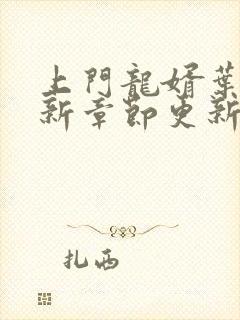 上門龍婿葉
新章節更新
扎西